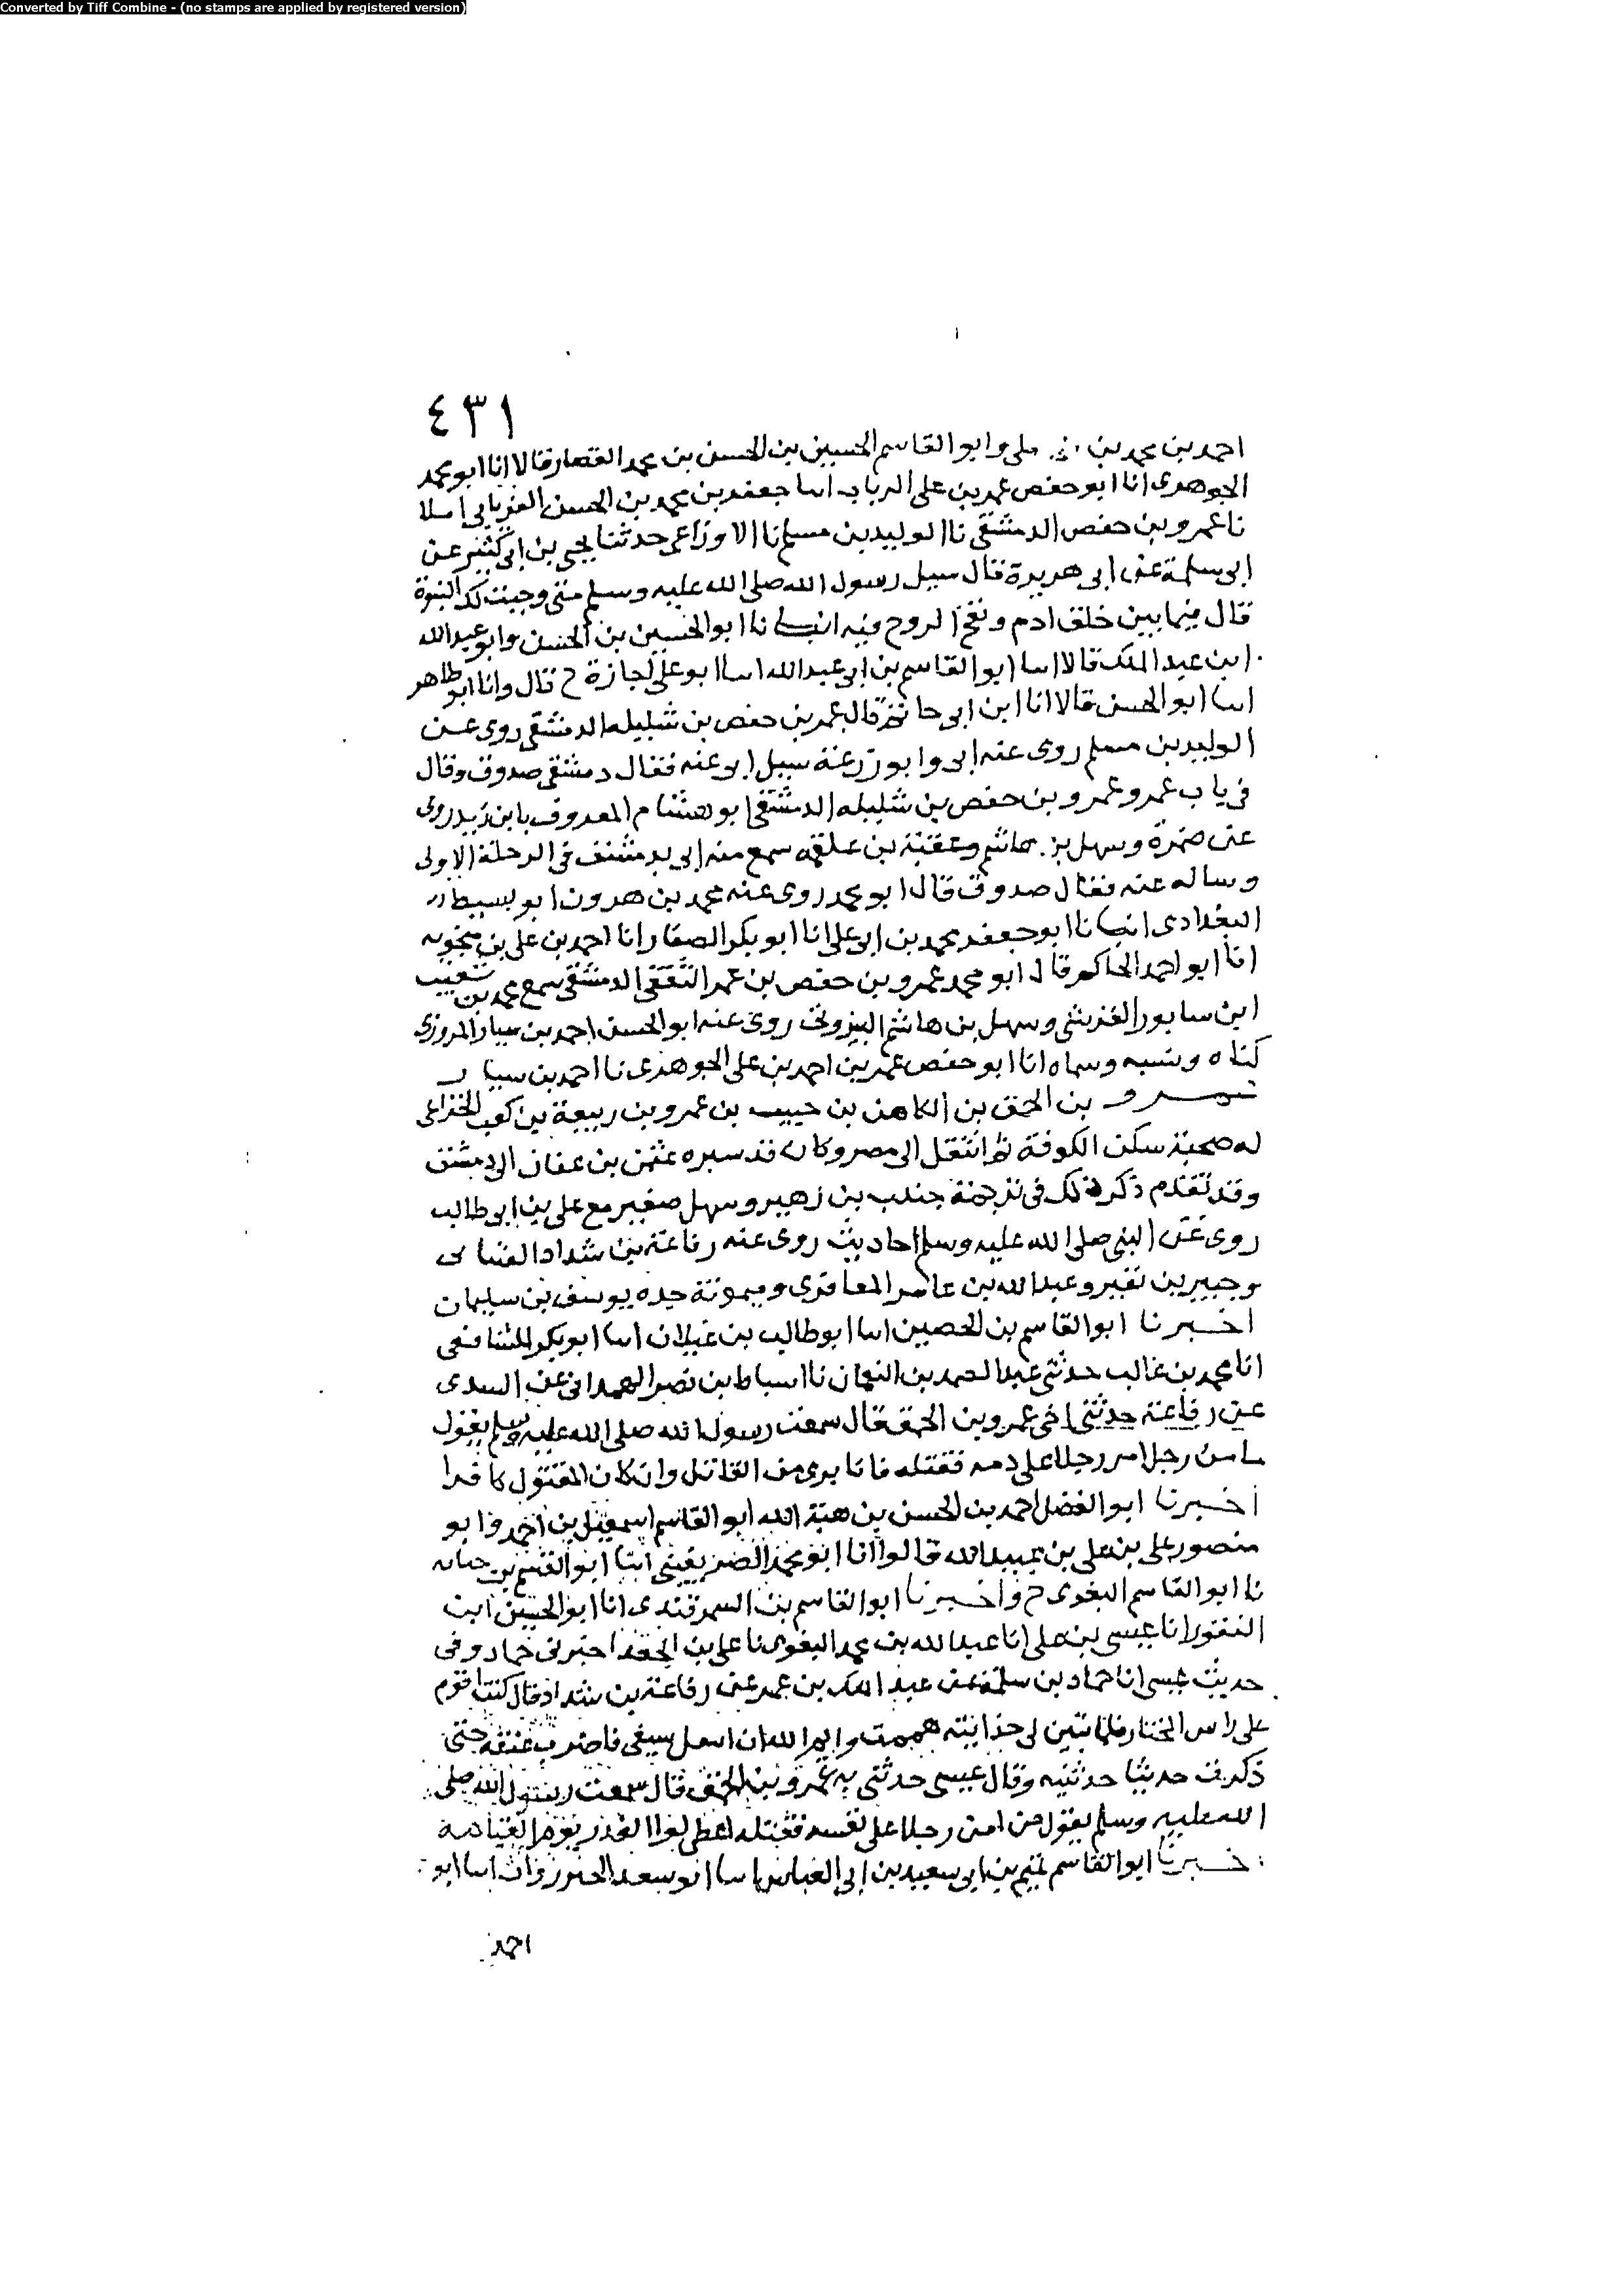 Converted by Tiff Combine - (no stamps are applied by registered version)
٤٣١
احمد بن محمد بن على وابو القاسم الحسين بن الحسن بن محمد القصار قالا انا ابو محمد
الجوهرى انا ابو حفص عمر بن على الرباب اسا جعفر بن محمد بن الحسن الفريابى املا
نا عمرو بن حفص الدمشقى نا الوليد بن مسلم نا الاوزاعى حدثنا يحيى بن ابى كثير عن
ابى سلمة عن ابى هريرة قال سيل رسول الله صلى الله عليه وسلم متى وجبت لك النبوة
قال فيما بين خلق ادم ونفخ الروح فيه انبانا ابو الحسين بن الحسن وابو عبد الله
ابن عبد الملك قالا اسا ابو القاسم بن ابى عبد الله اسا ابو على اجازة ح قال وانا ابو طاهر
اسا ابو الحسن قالا انا ابن ابى حاتم قال عمر بن حفص بن شليله الدمشقى روى عن
الوليد بن مسلم روى عنه ابى وابو زرعة سيل ابى عنه فقال دمشقى صدوق وقال
فى باب عمرو عمرو بن حفص بن شليله الدمشقى ابو هشام المعروف بابن زبد روى
عن ضمرة وسهل بن هاشم وعقبة بن علقمه سمع منه ابى بدمشق فى الرحلة الاولى
وساله عنه فقال صدوق قال ابو محمد روى عنه محمد بن هرون ابو بسيط
البغدادى انبانا ابو جعفر محمد بن ابى على انا ابو بكر الصفار انا احمد بن على بن منجويه
انا ابو احمد الحاكم قال ابو محمد عمرو بن حفص بن عمر الثقفى الدمشقى سمع محمد بن شعيب
ابن سابور القرشى وسهل بن هاشم البيروتى روى عنه ابو الحسن احمد بن سيار المروزى
كناه ونسبه وسماه انا ابو حفص عمر بن احمد بن على الجوهرى نا احمد بن سيار
عمرو بن الحمق بن الكاهن بن حبيب بن عمرو بن ربيعة بن كعب الخزاعى
له صحبة سكن الكوفة ثم انتقل الى مصر وكان قد سيره عثمن بن عفان الى دمشق
وقد تقدم ذكر ذلك فى ترجمة جندب بن زهير وسهل صفين مع على بن ابى طالب
روى عن النبى صلى الله عليه وسلم احاديث روى عنه رفاعة بن شداد الفتيانى
وجبير بن نفير وعبد الله بن عامر المعافرى وميمونة جده يوسف بن سليمان
اخبرنا ابو القاسم بن الحصين اسا ابو طالب بن غيلان اسا ابو بكر الشافعى
انا محمد بن غالب حدثنى عبد الصمد بن النعمان نا اسباط بن نصر الهمدانى عن السدى
عن رفاعة حدثنى اخى عمرو بن الحمق قال سمعت رسول الله صلى الله عليه وسلم يقول
ما من رجل امن رجلا على دمه فقتله فانا برى من القاتل وان كان المقتول كافرا
اخبرنا ابو الفضل احمد بن الحسن بن هبة الله ابو القاسم اسمعيل بن احمد وابو
منصور على بن على بن عبيد الله قالوا انا ابو محمد الصريفينى انبا ابو القسم بن حبابه
نا ابو القاسم البغوى ح واخبرنا ابو القاسم بن السمرقندى انا ابو الحسين ابن
النقور انا عيسى بن على انا عبد الله بن محمد البغوى نا على بن الجعد اخبرنى حماد وفى
حديث عيسى انا حماد بن سلمة عن عبد الملك بن عمير عن رفاعة بن شداد قال كنت اقوم
على راس المختار فلما تبين لى كذابته هممت وايم الله ان اسل سيفى فاضرب عنقه حتى
ذكرت حديثا حدثنيه وقال عيسى حدثنى به عمرو بن الحمق قال سمعت رسول الله صلى
الله عليه وسلم يقول من امن رجلا على نفسه فقتله اعطى لوا الغدر يوم القيامة
اخبرنا ابو القاسم تميم بن ابى سعيد بن ابى العباس اسا ابو سعد الجنزرودى اسا ابو
احمد